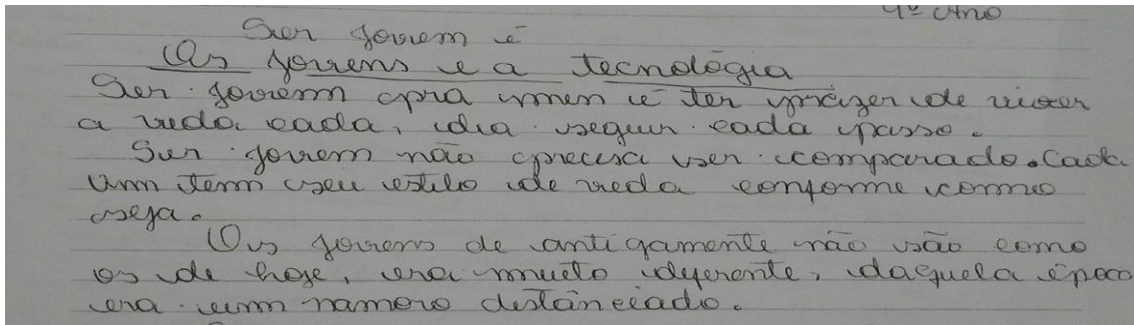 4º Ano
Ser jovem é
Os jovens e a tecnológia
Ser jovem pra min é ter prazer de viver
a vida cada, dia seguir cada passo.
Ser jovem não precisa ser comparado. Cada
um tem seu estilo de vida conforme como
seja.
Os jovens de antigamente não são como
os de hoje, era muito diferente, daquela época
era um namoro distânciado.